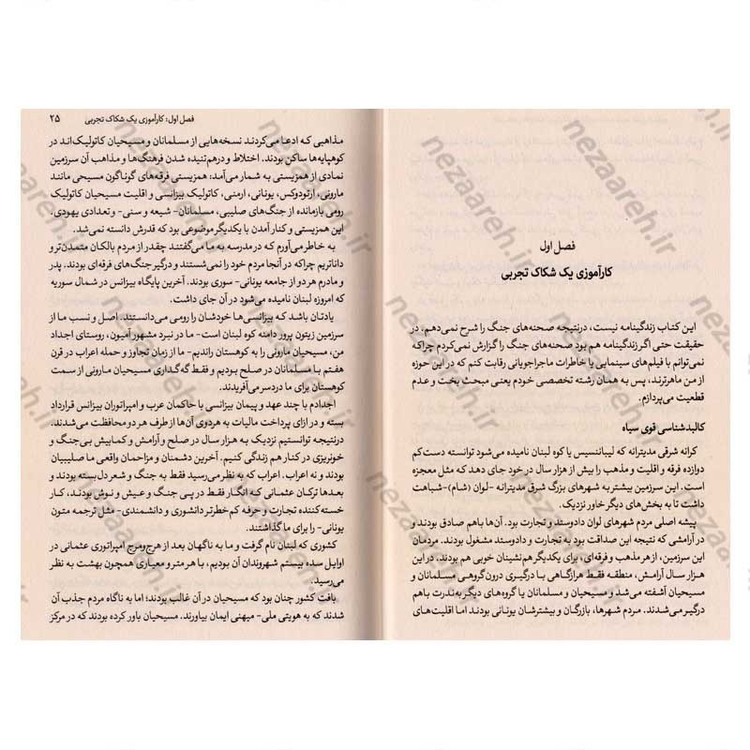 فصل اول
کارآموزی یک شکاک تجربی
این کتاب زندگینامه نیست، درنتیجه صحنه‌های جنگ را شرح نمی‌دهم. در
حقیقت حتی اگر زندگینامه هم بود صحنه‌های جنگ را گزارش نمی‌کردم چراکه
نمی‌توانم با فیلم‌های سینمایی یا خاطرات ماجراجویانی رقابت کنم که در این حوزه
از من ماهرترند، پس به همان رشته تخصصی خودم یعنی مبحث بخت و عدم
قطعیت می‌پردازم.
کالبدشناسی قوی سیاه
کرانه شرقی مدیترانه که لیباننسیس یا کوه لبنان نامیده می‌شود توانسته دست‌کم
دوازده فرقه و اقلیت و مذهب را بیش از هزار سال در خود جای دهد که مثل معجزه
است. این سرزمین بیشتر به شهرهای بزرگ شرق مدیترانه -لوان (شام)- شباهت
داشت تا به بخش‌های دیگر خاور نزدیک.
پیشه اصلی مردم شهرهای لوان دادوستد و تجارت بود. آن‌ها باهم صادق بودند و
در آرامشی که نتیجه این صداقت بود به تجارت و دادوستد مشغول بودند. مردمان
این سرزمین، از هر مذهب و فرقه‌ای، برای یکدیگر هم‌نشینان خوبی هم بودند. در این
هزار سال آرامش، منطقه فقط هرازگاهی با درگیری درون‌گروهی مسلمانان و
مسیحیان آشفته می‌شد و مسیحیان و مسلمانان یا گروه‌های دیگر به‌ندرت باهم
درگیر می‌شدند. مردم شهرها، بازرگان و بیشترشان یونانی بودند اما اقلیت‌های
فصل اول: کارآموزی یک شکاک تجربی ۲۵
مذاهبی که ادعا می‌کردند نسخه‌هایی از مسلمانان و مسیحیان کاتولیک‌اند در
کوهپایه‌ها ساکن بودند. اختلاط و درهم‌تنیده شدن فرهنگ‌ها و مذاهب آن سرزمین
نمادی از همزیستی به شمار می‌آمد: همزیستی فرقه‌های گوناگون مسیحی مانند
مارونی، ارتودوکس، یونانی، ارمنی، کاتولیک بیزانسی و اقلیت مسیحیان کاتولیک
رومی بازمانده از جنگ‌های صلیبی، مسلمانان- شیعه و سنی- و تعدادی یهودی.
این همزیستی و کنار آمدن با یکدیگر موضوعی بود که قدرش دانسته نمی‌شد.
به خاطر می‌آورم که در مدرسه به ما می‌گفتند چقدر از مردم بالکان متمدن‌تر و
داناتریم چراکه در آنجا مردم خود را نمی‌شستند و درگیر جنگ‌های فرقه‌ای بودند. پدر
و مادرم هردو از جامعه یونانی- سوری بودند. آخرین پایگاه بیزانس در شمال سوریه
که امروزه لبنان نامیده می‌شود در آن جای داشت.
یادتان باشد که بیزانسی‌ها خودشان را رومی می‌دانستند. اصل و نسب ما از
سرزمین زیتون پرور دامنه کوه لبنان است- ما در نبرد مشهور امیون، روستای اجداد
من، مسیحیان مارونی را به کوهستان راندیم- ما از زمان تجاوز و حمله اعراب در قرن
هفتم با مسلمانان در صلح بودیم و فقط گه‌گداری مسیحیان مارونی از
کوهستان برای ما دردسر می‌آفریدند.
اجدادم با چند عهد و پیمان بیزانسی با حاکمان عرب و امپراتوران بیزانس قرارداد
بسته و در ازای پرداخت مالیات به هردوی آن‌ها از طرف هر دو محافظت می‌شدند.
درنتیجه توانستیم نزدیک به هزار سال در صلح و آرامش و کمابیش بی‌جنگ و
خونریزی در کنار هم زندگی کنیم. آخرین دشمنان و مزاحمان واقعی ما صلیبیان
بودند و نه اعراب. اعراب که به نظر می‌رسید فقط به جنگ و شعر دل بسته بودند و
بعدها ترکان عثمانی که انگار فقط در پی جنگ و عیش و نوش بودند، کار
خسته‌کننده تجارت و حرفه کم‌خطرتر دانشوری و دانشمندی- مثل ترجمه متون
یونانی- را برای ما گذاشتند.
کشوری که لبنان نام گرفت و ما به ناگهان بعد از هرج‌ومرج امپراتوری عثمانی در
اوایل سده بیستم شهروندان آن بودیم، با هر متر و معیاری همچون بهشت به نظر
می‌رسید.
بافت کشور چنان بود که مسیحیان در آن غالب بودند؛ اما به ناگاه مردم جذب آن
شدند که به هویتی ملی- میهنی ایمان بیاورند. مسیحیان باور کرده بودند که در مرکز
nezaareh.ir